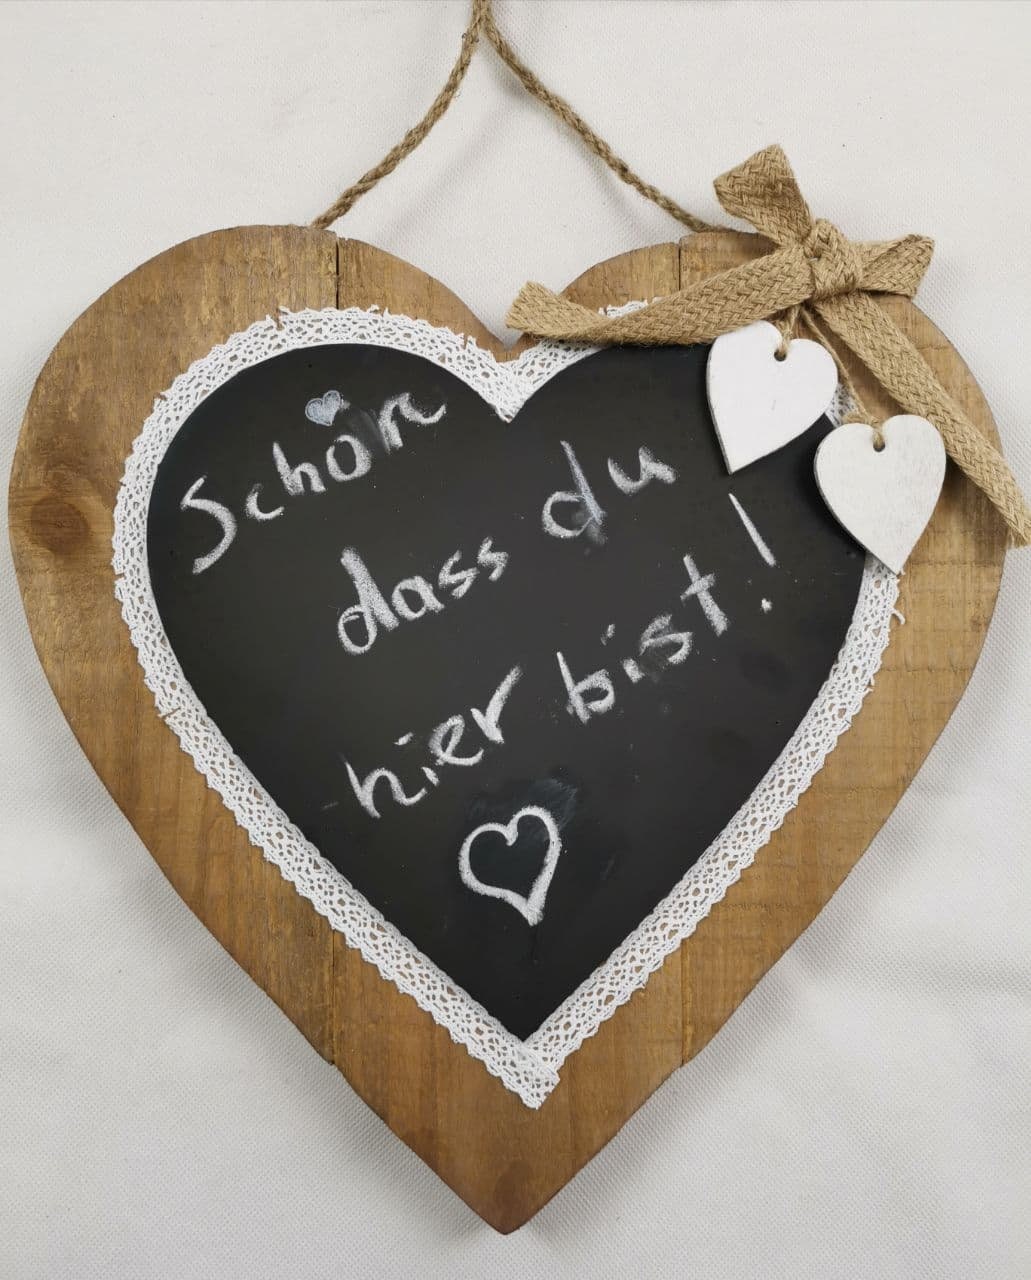 Schön
dass du
hier bist!